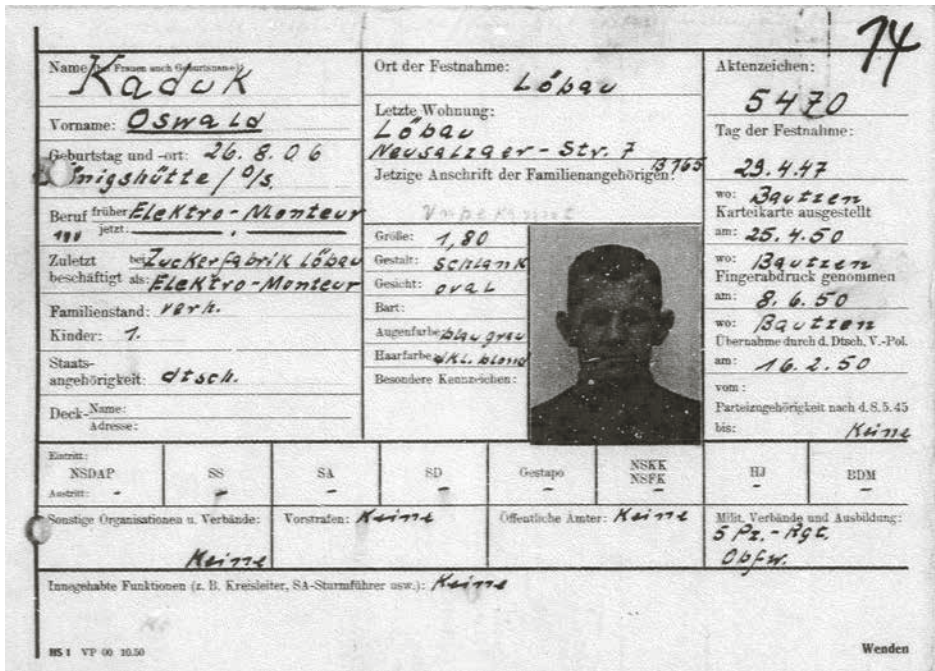 14
Name (bei Frauen auch Geburtsname):
Kaduk
Vorname: Oswald
Geburtstag und -ort: 26.8.06
Königshütte / O/S.
Beruf früher Elektro-Monteur
jetzt:
Zuletzt bei Zuckerfabrik Löbau
beschäftigt als: Elektro-Monteur
Familienstand: verh.
Kinder: 1.
Staats-
angehörigkeit: dtsch.
Deck- Name:
Adresse:
Ort der Festnahme:
Löbau
Letzte Wohnung:
Löbau
Neusalzaer-Str. 7
Jetzige Anschrift der Familienangehörigen:
Unbekannt
Größe: 1,80
Gestalt: schlank
Gesicht: oval
Bart:
Augenfarbe blaugrau
Haarfarbe dkl. blond
Besondere Kennzeichen:
Aktenzeichen:
5470
Tag der Festnahme:
29.4.47
wo: Bautzen
Karteikarte ausgestellt
am: 25.4.50
wo: Bautzen
Fingerabdruck genommen
am: 8.6.50
wo: Bautzen
Übernahme durch d. Dtsch. V.-Pol.
am: 16.2.50
vom:
Parteizugehörigkeit nach d. 8.5.45
bis: Keine
Eintritt:
NSDAP SS SA SD Gestapo NSKK NSFK HJ BDM
Austritt: - - - - - - - -
Sonstige Organisationen u. Verbände:
Keine
Vorstrafen: Keine
Öffentliche Ämter: Keine
Milit. Verbände und Ausbildung:
5 Pz.-Rgt.
Obfw.
Innegehabte Funktionen (z. B. Kreisleiter, SA-Sturmführer usw.): Keine
HS 1 VP 00 10.50
Wenden